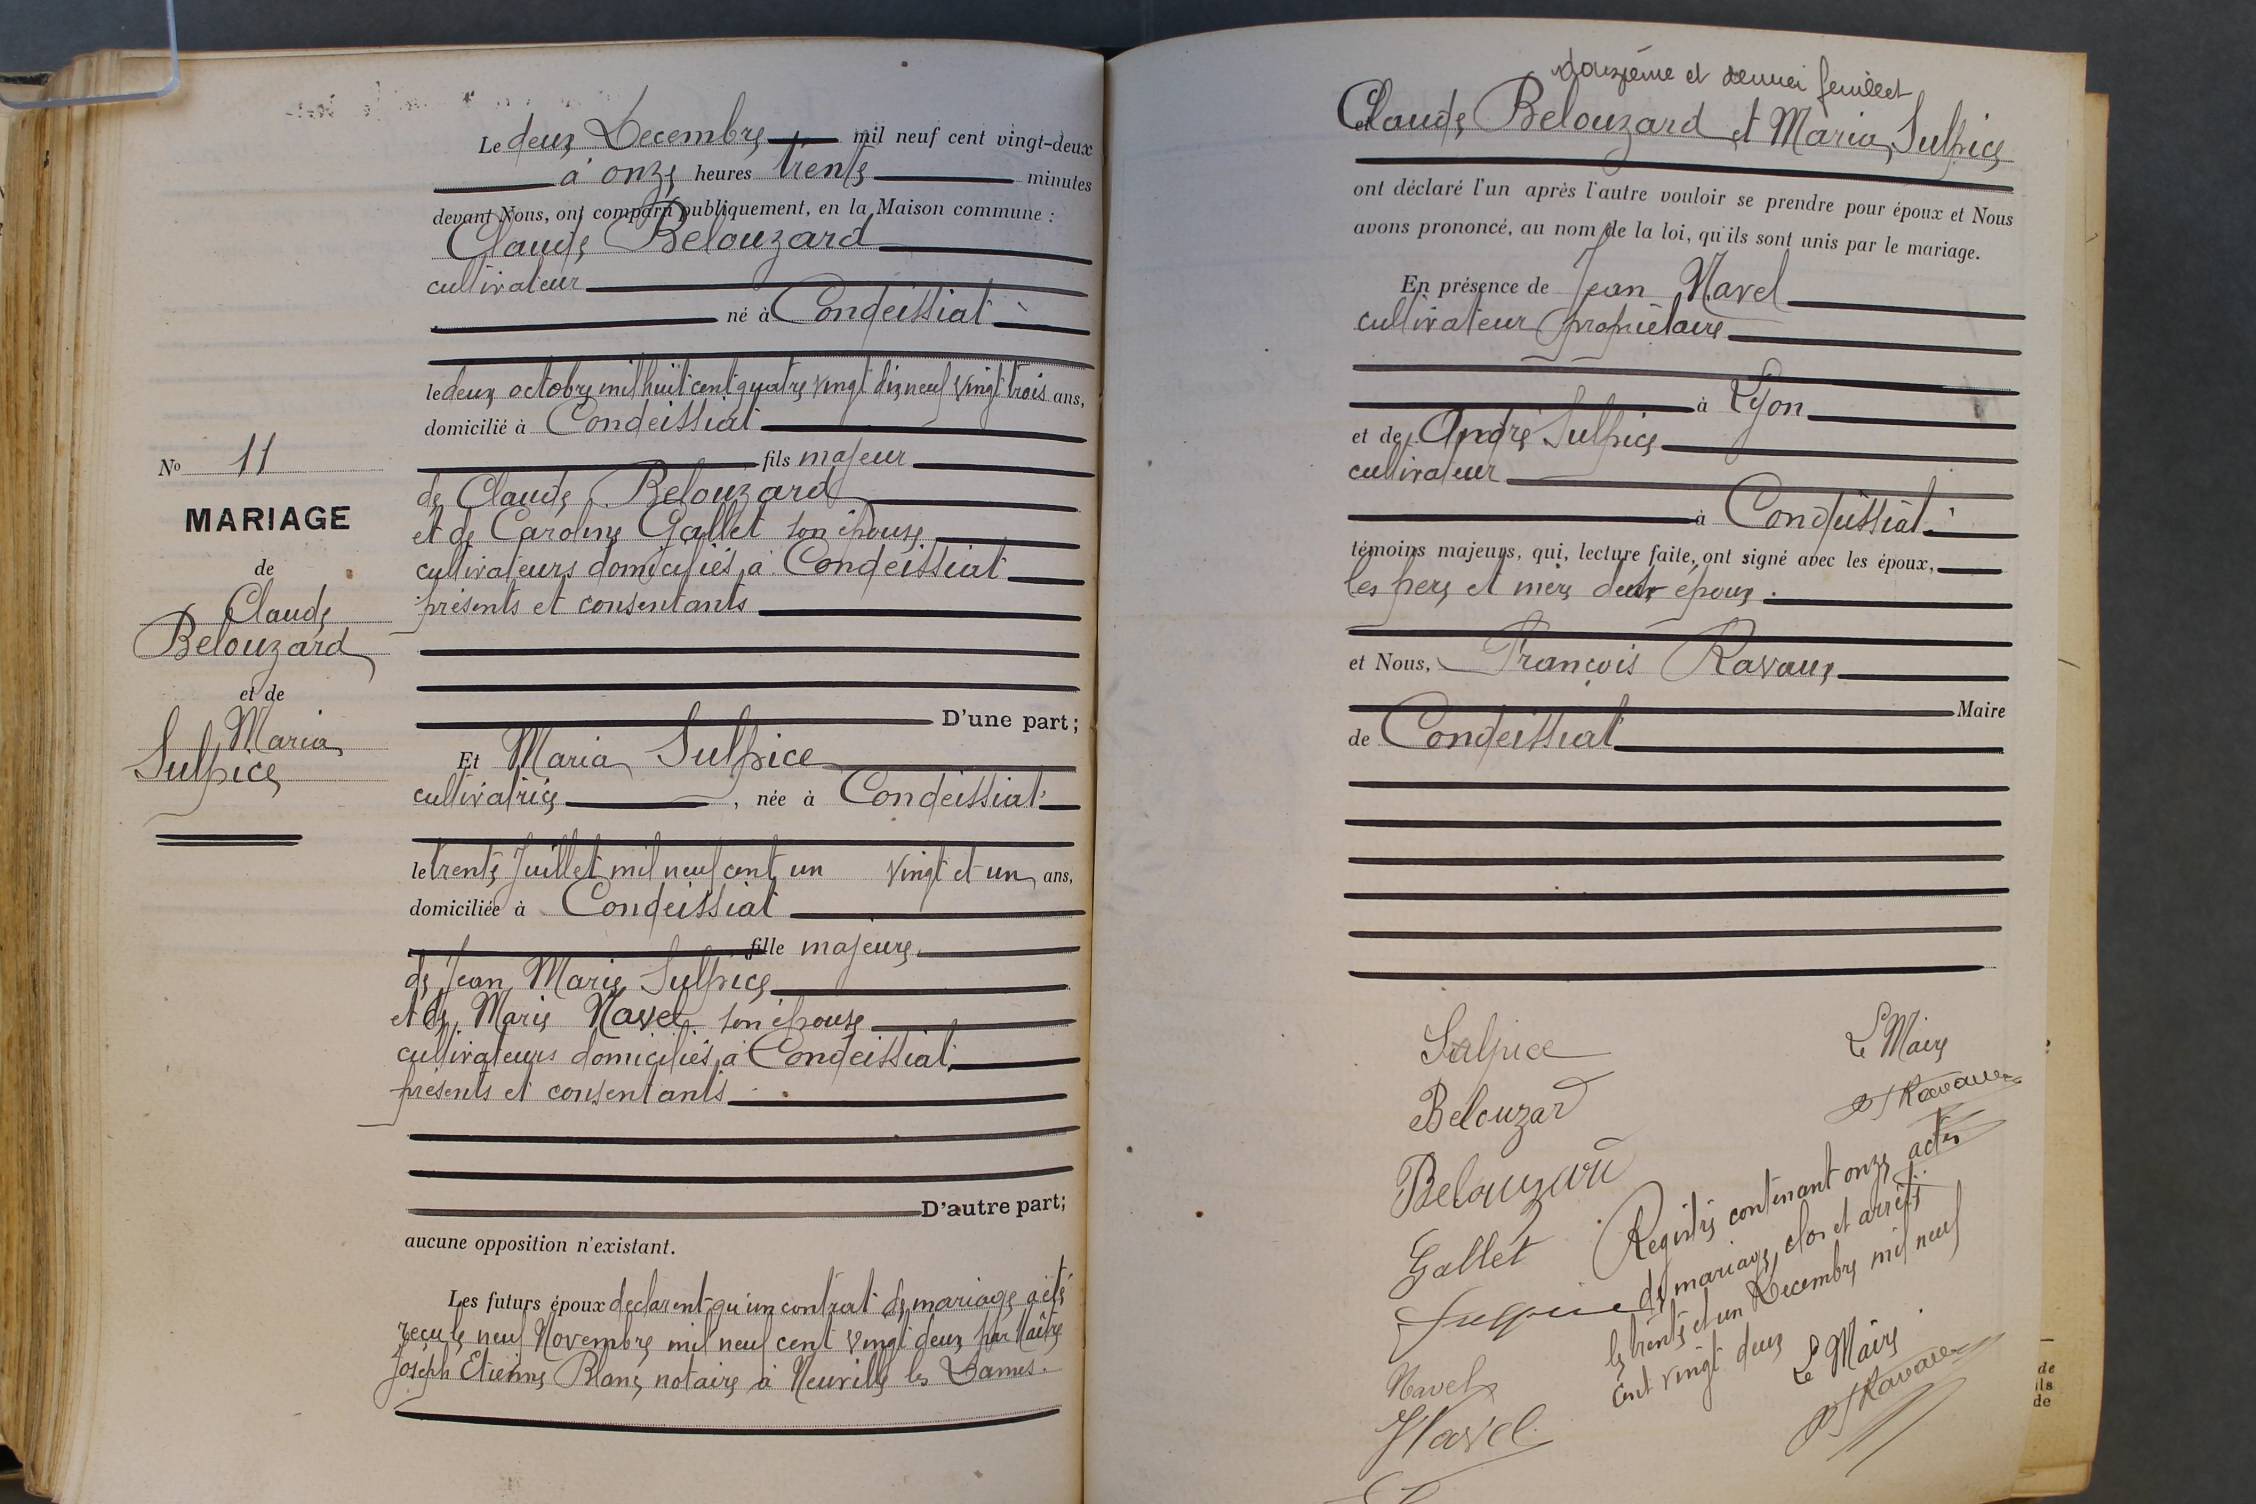 Le deux Decembre mil neuf cent vingt-deux
à onze heures trente minutes
devant Nous, ont comparu publiquement, en la Maison commune :
Claude Belouzard
cultivateur
né à Condeissiat
le deux octobre mil huit cent quatre vingt dix neuf vingt trois ans,
domicilié à Condeissiat
fils majeur
de Claude Belouzard
et de Caroline Gallet son épouse
cultivateurs domiciliés à Condeissiat
présents et consentants
D'une part ;
No 11
MARIAGE
de
Claude
Belouzard
et de
Maria
Sulpice
Et Maria Sulpice
cultivatrice, née à Condeissiat
le trente Juillet mil neuf cent un vingt et un ans,
domiciliée à Condeissiat
fille majeure
de Jean Marie Sulpice
et de Marie Navel son épouse
cultivateurs domiciliés à Condeissiat
présents et consentants
D'autre part;
aucune opposition n'existant.
Les futurs époux declarent qu'un contrat de mariage a été
reçu le neuf Novembre mil neuf cent vingt deux par Maître
Joseph Etienne Blanc notaire à Neuville les Dames.
douzième et dernier feuillet
Claude Belouzard et Maria Sulpice
ont déclaré l'un après l'autre vouloir se prendre pour époux et Nous
avons prononcé, au nom de la loi, qu'ils sont unis par le mariage.
En présence de Jean Navel
cultivateur propriétaire
à Lyon
et de André Sulpice
cultivateur
à Condeissiat
témoins majeurs, qui, lecture faite, ont signé avec les époux,
les père et mère des époux.
et Nous, François Ravaux
Maire
de Condeissiat
Sulpice
Belouzard
Belouzard
Gallet
Sulpice
Navel
Navel
Le Maire
Ravaux
Registre contenant onze actes
de mariage, clos et arrêté
le trente et un Decembre mil neuf
cent vingt deux
Le Maire
Ravaux
de
ils
de